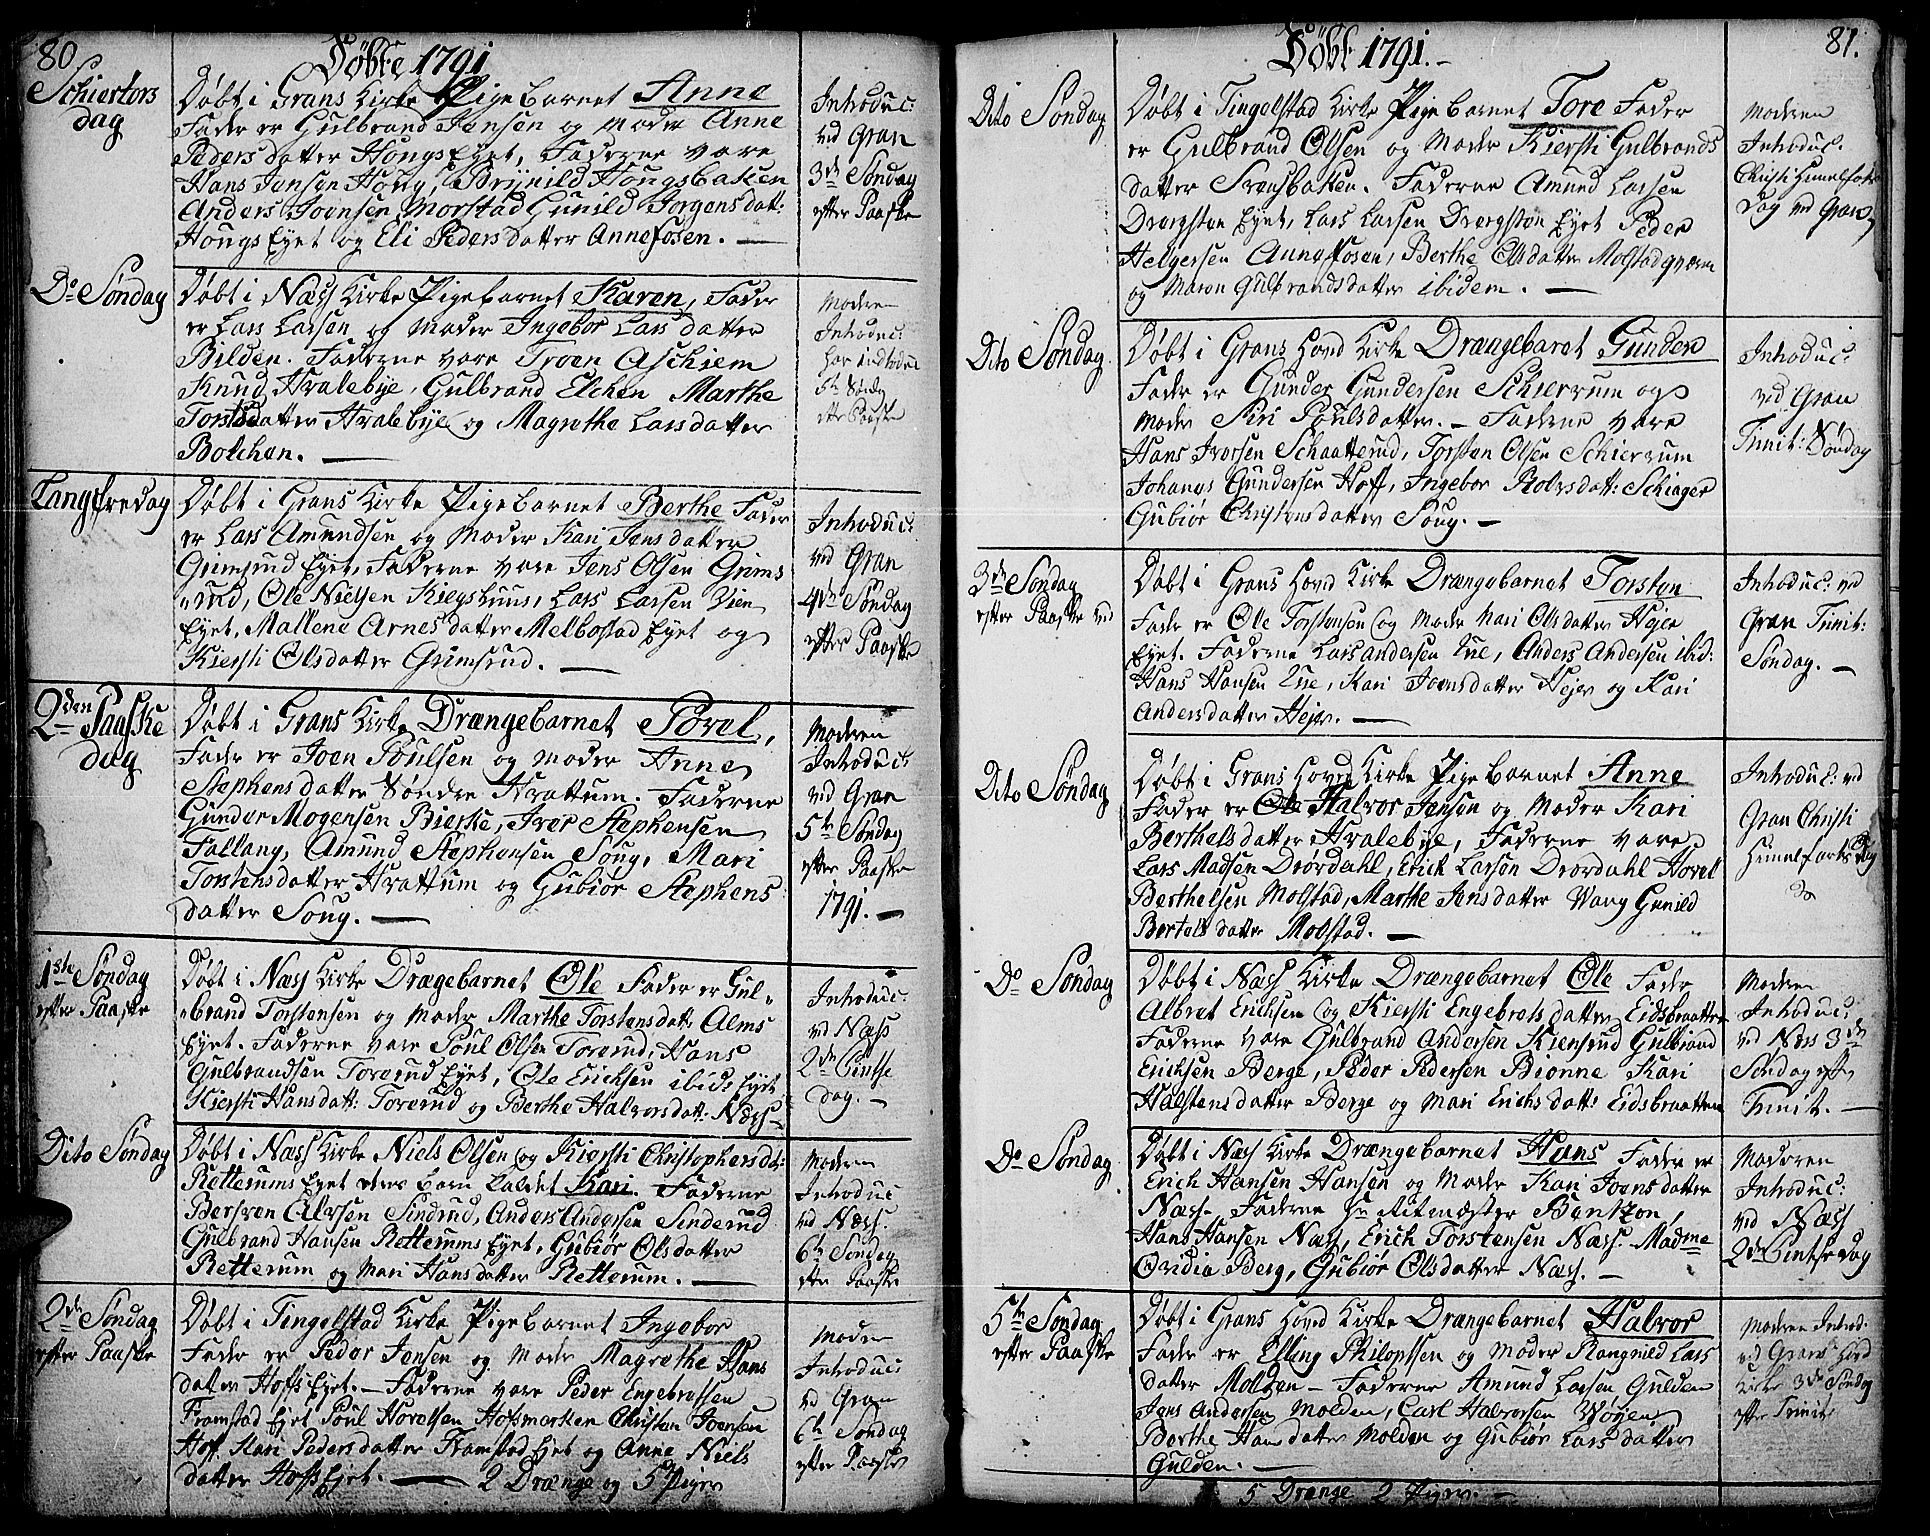 80
Døbte 1791
Schiertors
dag
Døbt i Grans Kirke Pigebarnet Anne
Fader er Gulbrand Jensen og Moder Anne
Peders datter Hougs Eyet, Faderne vare
Hans Jensen Houg, Brynild Hougsbaken
Anders Joensen Morstad Gunild Jorgensdatt:
Hougs Eyet og Eli Pedersdatter Annefosen. —
Introduc:
ved Gran
3de Søndag
efter Paaske
Do Søndag
Døbt i Næss Kirke Pigebarnet Karen, Fader
er Lars Larsen og Moder Ingebor Lars datter
Bilden. Faderne vare Troen Aschiem
Knud Hvalebye, Gulbrand Elchen Marthe
Torstensdatter Hvalebye og Magrethe Larsdatter
Bolchen. —
Moderen
Introduc:
5te Sønd:
efter Paaske
Langfredag
Døbt i Grans Kirke Pigebarnet Berthe Fader
er Lars Amundsen og Moder Kari Jensdatter
Grimsrud Eyet, Faderne vare Jens Olsen Grims
"rud, Ole Nielsen Kiegshuus, Lars Larsen Vien
Eyet, Mallene Arnesdatter Melbostad Eyet og
Kiersti Olsdatter Grimsrud. —
Introduc:
ved Gran
4de Søndag
efter Paaske
2den Paaske
dag
Døbt i Grans Kirke Drængebarnet Povel,
Fader er Joen Poulsen og Moder Anne
Stephensdatter Søndre Hvattum. Faderne
Gunder Mogensen Bierke, Iver Stephensen
Fallang, Amund Stephensen Soug, Mari
Torstensdatter Hvattum og Gubiør Stephens
datter Soug. —
Moderen
Introduc:
ved Gran
5te Søndag
efter Paaske
1791. —
1ste Søndag
efter Paaske
Døbt i Næss Kirke Drægebarnet Ole Fader er Gul-
"brand Torstensen og Moder Marthe Torstensdatt: Alms
Eyet. Faderne vare Poul Olsen Toverud, Hans
Gulbrandsen Toverud Eyet, Ole Ericksen ibid: Eyet
Kiersti Hansdatt: Toverud og Berthe Halvorsdatt: Næss -
Introduc:
ved Næss
2de Pintse
dag. —
Dito Søndag
Døbt i Næss Kirke Niels Olsen og Kiersti Christophersdat:
Retterums Eyet deres barn kaldet Kari. Faderne
Bersven Sindrud, Anders Andersen Sinderud
Gulbrand Hansen Rettemms Eyet, Gubiør Olsdatter
Retterum og Mari Hansdatter Retterum. —
Moderen
Introduc
ved Næss.
6te Søndag
efter Paaske
2de Søndag
efter Paaske
Døbt i Tingelstad Kirke Pigebarnet Ingebor
Fader er Peder Jensen og Moder Magrethe Hans
datter Hoffs Eyet. — Faderne vare Peder Engebretsen
Framstad Eyet Poul Hovelsen Hofsmarken Christen Joensen
Hoff. Kari Pedersdatter Framstad Eyet og Anne Niels
datter Hoffs Eyet. — 2 Drænge og 5 Piger
Moder
Introduc:
ved Gran
6te Søndag
efter Paaske
81.
Døbt 1791. -
Dito Søndag
Døbt i Tingelstad Kirke Pigebarnet Tore Fader
er Gulbrand Olsen og Moder Kiersti Gulbrands
datter Svensbaken. Faderne Amund Larsen
Drægsten Eyet, Lars Larsen Drægsten Eyet Peder
Helgersen Aungfosen, Berthe Olsdatter Molstadqværn
og Maren Gulbrandsdatter ibidem. —
Moderen
Introduc:
Christi Himelfarts
Dag ved Gran
Dito Søndag.
Døbt i Grans Hoved Kirke Drængebaret Gunder
Fader er Gunder Gundersen Schierrum og
Moder Siri Poulsdatter. — Faderne vare
Hans Iversen Schaatterud, Torsten Olsen Schierrum
Johanes Gundersen Hoff, Ingebor Rolvsdatt: Schiager
Gubiør Christensdatter Soug. —
Introduc:
ved Gran
Trinit: Søndag
3de Søndag
efter Paaske ved
Døbt i Grans Hoved Kirke Drængebarnet Torsten
Fader er Ole Torstensen og Moder Mari Olsdatter Hejer
Eyet. Faderne Lars Andersen Lue, Anders Andersen ibid:
Hans Hansen Lue, Kari Joensdatter Hejer og Kari
Andersdatter Hejer. —
Introduc: ved
Gran Trinit:
Søndag. —
Dito Søndag
Døbt i Grans Hoved Kirke Pigebarnet Anne
Fader er Ole Halvor Jensen og Moder Kari
Berthelsdatter Hvalebye, Faderne vare
Lars Madsen Drørdahl, Erick Larsen Drørdahl Hovel
Berthelsen Molstad, Marthe Jensdatter Vang Gunild
Bertels datter Molstad. —
Introduc: ved
Gran Christi
Himelfarts Dag
Do Søndag
Døbt i Næss Kirke Drængebarnet Ole Fader
Albret Ericksen og Kiersti Engebretsdatter Eidsbraatte
Faderne vare Gulbrand Andersen Kiensrud Gulbrand
Ericksen Berge, Peder Pedersen Bionne Kari
Halstensdatter Berge og Mari Erichsdatt: Eidsbraatten
Moderen
Introduc:
ved Næss 3de
Søndag eft
Trinit. —
Do Søndag
Døbt i Næss Kirke Drængebarnet Hans Fader er
Erich Hansen Hansen og Moder Kari Joensdatter
Næss. Faderne Hr Ritmæster Bentzon,
Hans Hansen Næss, Erich Torstensen Næss. Madme
Ovidia Berg, Gubiør Olsdatter Næss. —
Moderen
Introduc:
ved Næss
2de Pintsedag
5te Søndag
efter Paaske
Døbt i Grans Hoved Kirke Drængebarnet Halvor
Fader er Elling Philopsen og Moder Rangnild Lars
datter Molden — Faderne Amund Larsen Gulden
Jens Andersen Molden, Carl Halvorsen Woyen
Berthe Hansdatter Molden og Gubiør Lars datter
Gulden. —
5 Drænge 2 Piger. —
Moderen Introd.
ved Grans Hoved
Kirke 3de Søndag
efter Trinit: